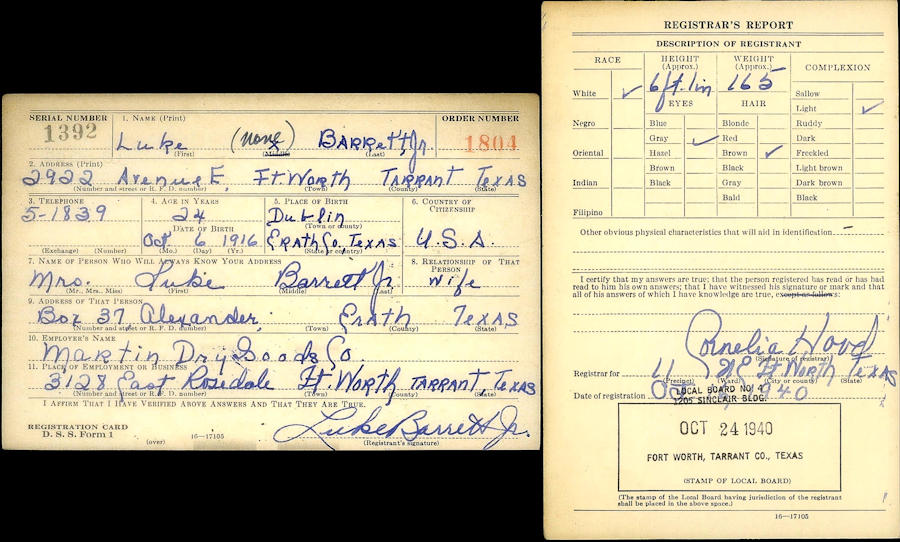 SERIAL NUMBER 1. NAME (Print) ORDER NUMBER
1392 Luke (none) BARRett, Jr. 1804
(First) (Middle) (Last)
2. ADDRESS (Print)
2922 Avenue E, Ft. Worth TARRANT TEXAS
(Number and street or R. F. D. number) (Town) (County) (State)
3. TELEPHONE 4. AGE IN YEARS 5. PLACE OF BIRTH 6. COUNTRY OF CITIZENSHIP
5-1839 24 Dublin
(Town or county)
DATE OF BIRTH
Oct. 6 1916 ERATH Co., TEXAS U.S.A.
(Exchange) (Number) (Mo.) (Day) (Yr.) (State or country)
7. NAME OF PERSON WHO WILL ALWAYS KNOW YOUR ADDRESS 8. RELATIONSHIP OF THAT PERSON
Mrs. Luke Barrett Jr. Wife
(Mr., Mrs., Miss) (First) (Middle) (Last)
9. ADDRESS OF THAT PERSON
Box 37, Alexander, ERATH TEXAS
(Number and street or R. F. D. number) (Town) (County) (State)
10. EMPLOYER'S NAME
Martin Dry Goods Co.
11. PLACE OF EMPLOYMENT OR BUSINESS
3128 East Rosedale Ft. Worth TARRANT, TEXAS
(Number and street or R. F. D. number) (Town) (County) (State)
I AFFIRM THAT I HAVE VERIFIED ABOVE ANSWERS AND THAT THEY ARE TRUE.
REGISTRATION CARD
D. S. S. Form 1 Luke Barrett Jr.
(over) 16—17105 (Registrant's signature)
REGISTRAR'S REPORT
DESCRIPTION OF REGISTRANT
RACE HEIGHT (Approx.) WEIGHT (Approx.) COMPLEXION
6 ft. 1 in 165
White ✓ EYES HAIR Sallow
Light ✓
Negro Blue Blonde Ruddy
Gray ✓ Red Dark
Oriental Hazel Brown ✓ Freckled
Brown Black Light brown
Indian Black Gray Dark brown
Bald Black
Filipino
Other obvious physical characteristics that will aid in identification —
I certify that my answers are true; that the person registered has read or has had
read to him his own answers; that I have witnessed his signature or mark and that
all of his answers of which I have knowledge are true, except as follows:
Cornelia Hood
(Signature of registrar)
Registrar for 11 Ft Worth Texas
(Precinct) (Ward) (City or county) (State)
Date of registration
LOCAL BOARD NO. 4
1205 SINCLAIR BLDG.
OCT 24 1940
FORT WORTH, TARRANT CO., TEXAS
(STAMP OF LOCAL BOARD)
(The stamp of the Local Board having jurisdiction of the registrant
shall be placed in the above space.)
16—17105